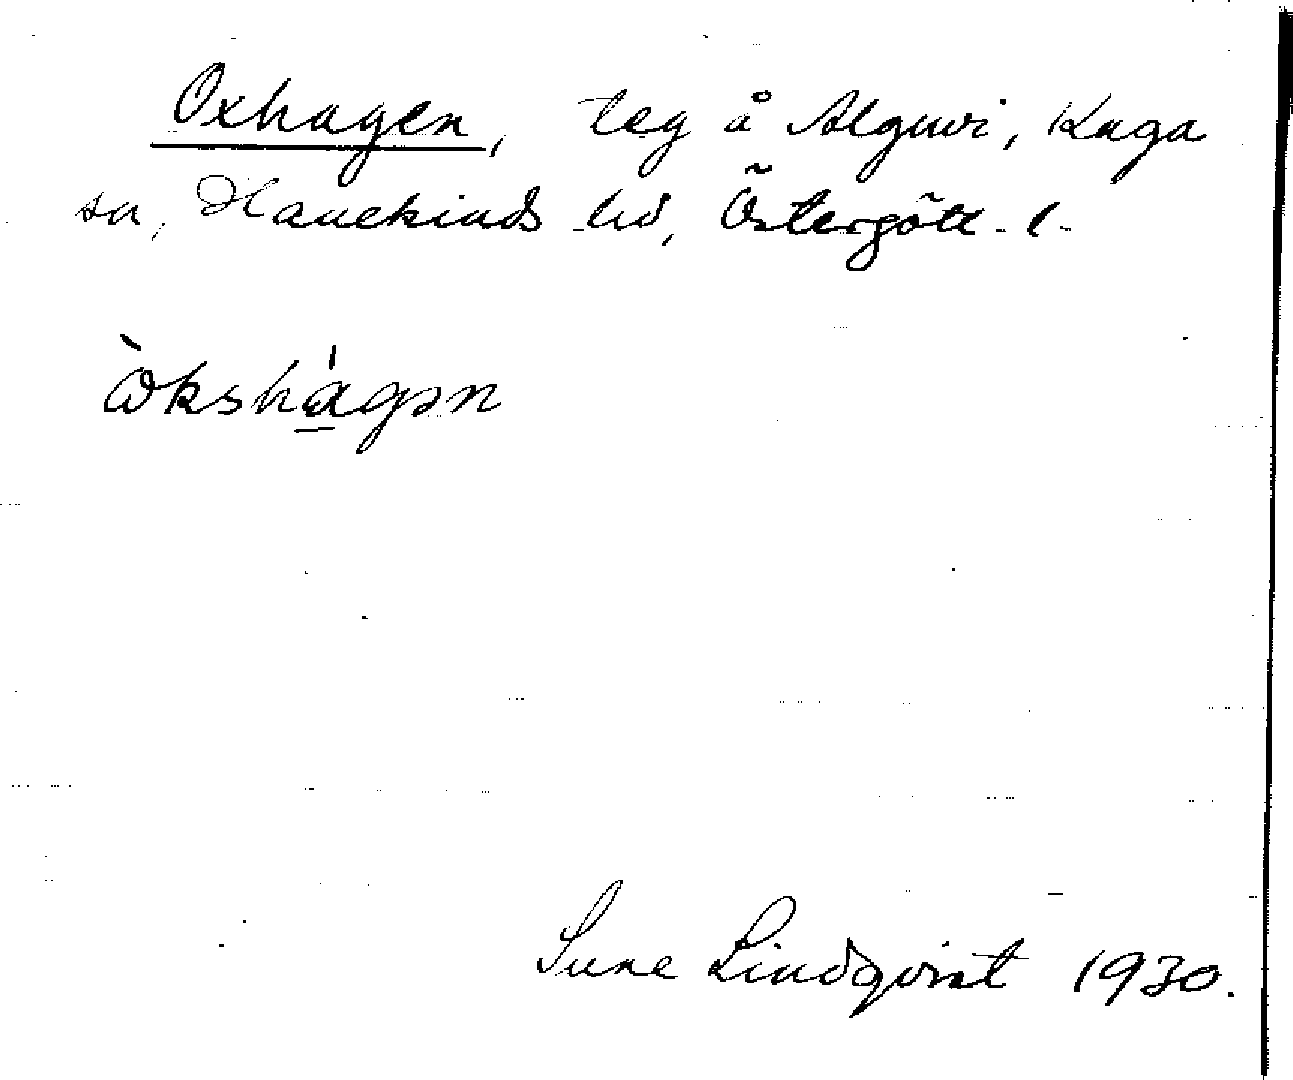 Oxhagen, teg å Alguvi, Kaga
sn, Hanekinds hd, Östergötl. l.
ωkshagən
Sune Lindqvist 1930.